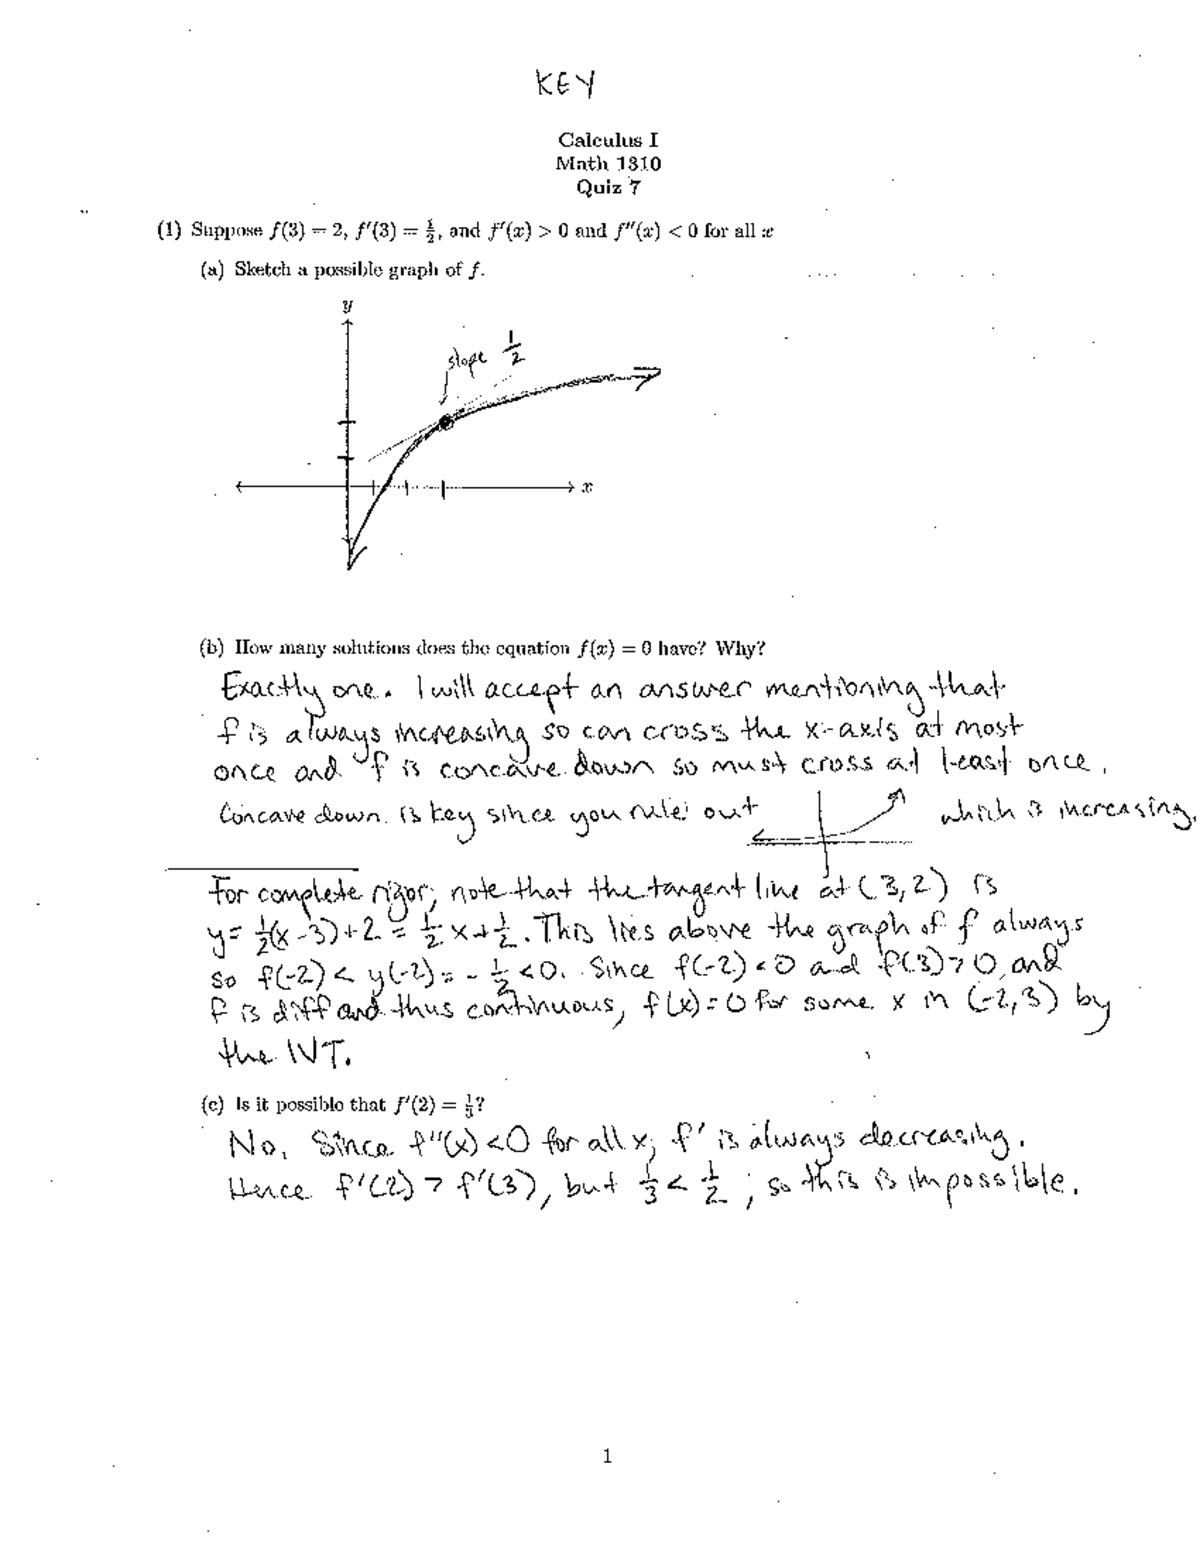 KEY
Calculus I
Math 1310
Quiz 7
(1) Suppose f(3) = 2, f'(3) = 1/2, and f'(x) > 0 and f''(x) < 0 for all x
(a) Sketch a possible graph of f.
y
slope 1/2
x
(b) How many solutions does the equation f(x) = 0 have? Why?
Exactly one. I will accept an answer mentioning that
f is always increasing so can cross the x-axis at most
once and f is concave down so must cross at least once.
Concave down is key since you rule out which is increasing.
For complete rigor, note that the tangent line at (3,2) is
y = 1/2(x-3)+2 = 1/2 x + 1/2. This lies above the graph of f always
so f(-2) < y(-2) = -1/2 < 0. Since f(-2) < 0 and f(3) > 0, and
f is diff and thus continuous, f(x) = 0 for some x in (-2,3) by
the IVT.
(c) Is it possible that f'(2) = 1/3?
No. Since f''(x) < 0 for all x, f' is always decreasing.
Hence f'(2) > f'(3), but 1/3 < 1/2, so this is impossible.
1